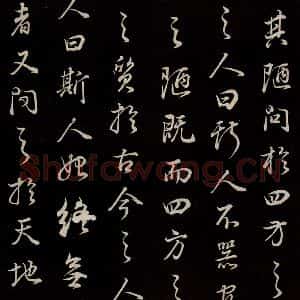 其陋問於四方之
之人曰斯人不器
之陋既而四方之
之質於古今之人
人曰斯人絶無
者又問之於天地
Shufawang.CN